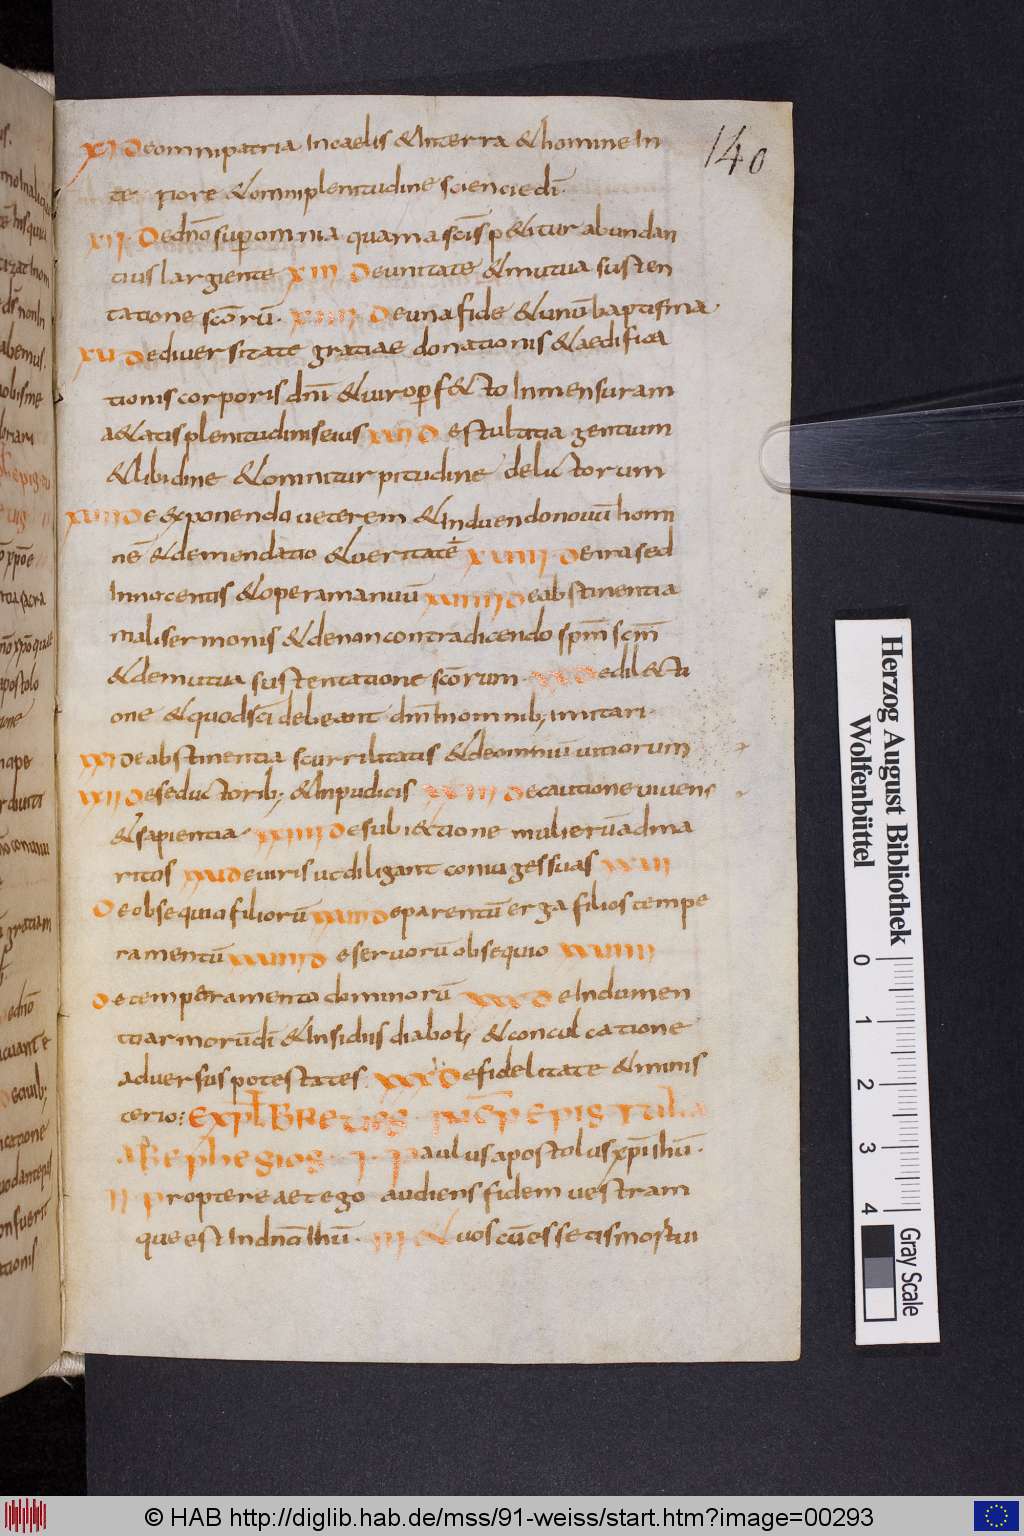 140
XI Deomnipatria Incaelis &Interra &homine In
te riore &omniplenitudine scienciedi.
XII. Dedno suꝑomnia quamascis p&itur abundan
tius largiente XIII Deunitate &mutua susten
tatione scorū. XIIII Deunafide &unū baptisma
XU Dediuersitate gratiae donationis &aedifica
tionis corporis dni &uiroꝑf&to Inmensuram
a&atis plenitudinis eius D estultitia gentium
&libidine &omniturpitudine delictorum
De exponendo ueterem &Induendonouū homi
nē &demendatio &ueritate XUIIII Deirased
Innocentis &operamanuū XUIIII Deabstinentia
malisermonis &denoncontradicendo spm scm
&demutua sustentatione scorum. XX Dedil&ti
one &quodsci debeant dm Inomnib; imitari.
XXI Deabstinentia scurrilitatis &deomniū uitiorum
XXII Deseductorib; &Inpudicis XXIII Decautione uiuens
&sapientia XXIIII Desubi&tione mulierū adma
ritos XXU Deuiris utdiligant coniugessuas XXUI
De obsequio filiorū XXUII Deparentū erga filios tempe
ramentū XXUIII D eseruorū obsequio XXUIIII
De temperamento dominorū XXX DeIndumen
tiarmorūdi &Insidiis diaboli, &conculcatione
aduersus potestates XXXI Defidelitate &minis
terio: EXPL BREUES INCP EPISTULA
AD Ephesios. I. Paulus apostolus xpi ihu.
II Proptereaetego audiens fidem uestram
que est Indno ihu. III &uos cū essetis mortui
Herzog August Bibliothek
Wolfenbüttel
0 1 2 3 4
Gray Scale
© HAB http://diglib.hab.de/mss/91-weiss/start.htm?image=00293